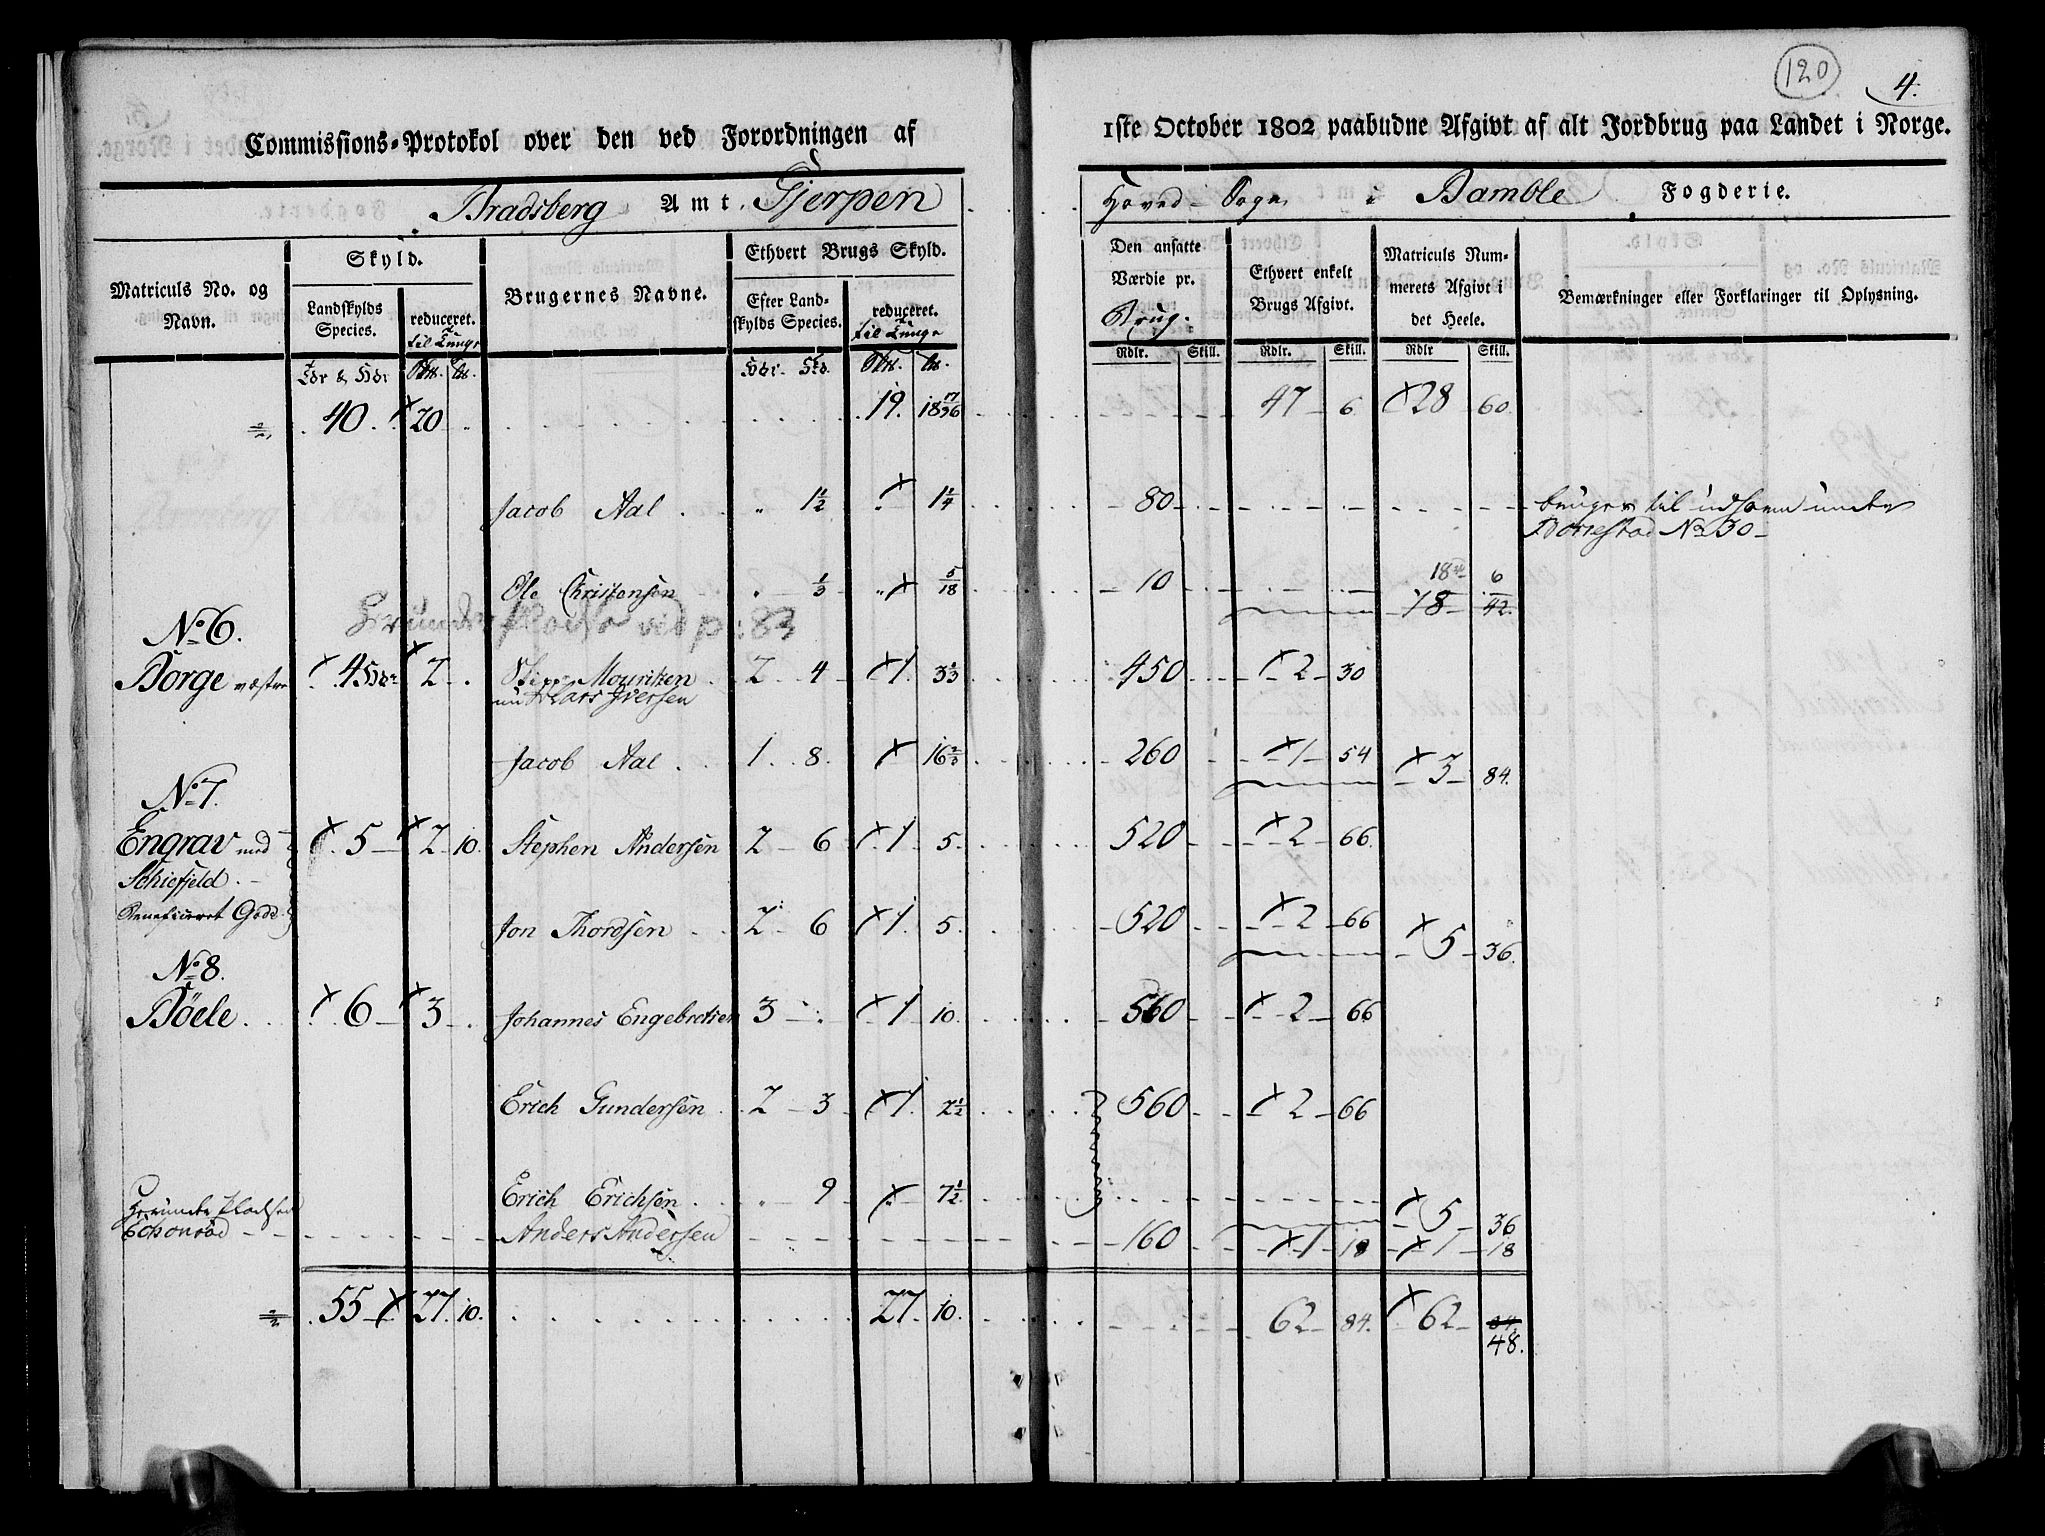 120
4.
Commissions-Protokol over den ved Forordningen af 1ste October 1802 paabudne Afgivt af alt Jordbrug paa Landet i Norge.
Bradsberg Amt. Gjerpen Hoved-Sogn i Bamble Fogderie.
Matriculs No. og Navn.
Skyld.
Landskylds Species.
reduceret. til Tunge
Brugernes Navne.
Ethvert Brugs Skyld.
Efter Landskylds Species.
reduceret. til Tunge
Den ansatte Værdie pr. Brug.
Ethvert enkelt Brugs Afgivt.
Matriculs Nummerets Afgivt i det Heele.
Bemærkninger eller Forklaringer til Oplysning.
Rdlr. Skill. Rdlr. Skill. Rdlr Skill.
40. 20 19. 18 17/36 47 6 28 60.
Jacob Aal 1/2 1/4 80 bruges til under
Borrestad No 30
Ole Christensen 1/3 5/18 10 18 6
18 42.
Grunde Pladse vid p: 83
No 6.
Borge 4 2 Mouritzen 2 4 1 3 1/3 450 2 30
Lars Iversen
Jacob Aal 1 8 16 2/3 260 1 54 3 84.
No 7.
Engrav med 5 2 10. Stephen Andersen 2 6 1 5. 520 2 66.
Schiefjeld.
Beneficeret Gods
Jon Thordsen 2 6 1 5. 520 2 66 5 36.
No 8.
Böele 6 3 Johannes Engebretsen 3 1 10. 560 2 66
Erich Gundersen 2 3 1. 2 1/2 560 2 66
Erich Erichsen 9 7 1/2 5 36
Anders Andersen 160 1 18 1 18
55 27. 10. 27. 10. 62 84. 62 84.
48.